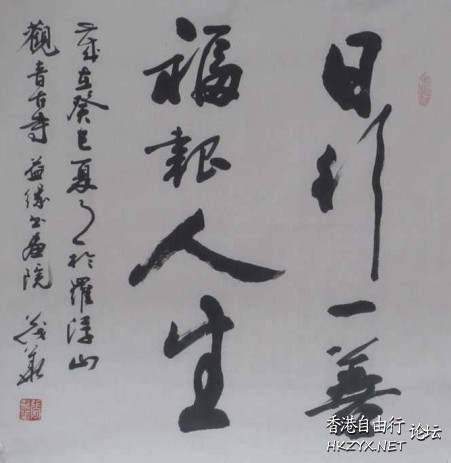 日行一善
福報人生
歲在癸巳夏月於羅浮山
觀音古寺益緣書畫院
香港自由行 论坛
HKZYX.NET